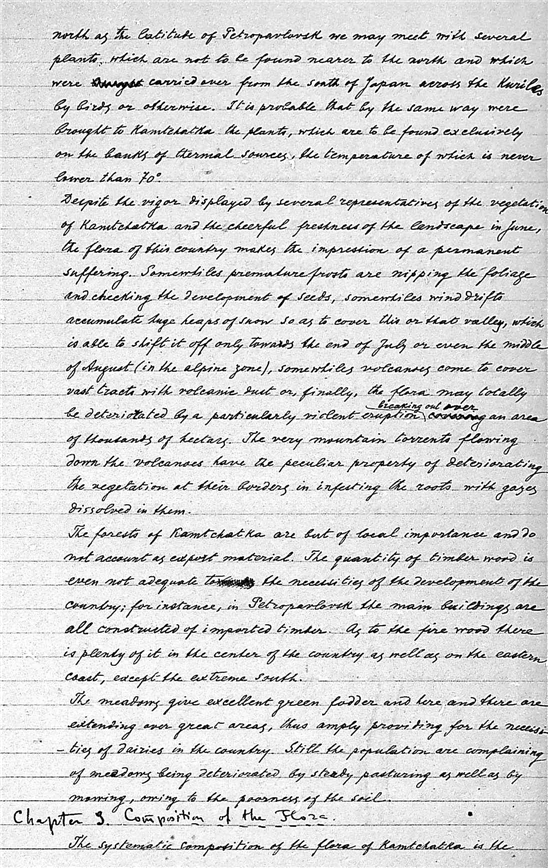 north as the latitude of Petropavlovsk we may meet with several
plants, which are not to be found nearer to the north and which
were carried over from the south of Japan across the Kuriles
by birds or otherwise. It is probable that by the same way were
brought to Kamtchatka the plants, which are to be found exclusively
on the banks of thermal sources, the temperature of which is never
lower than 70°.
Despite the vigor displayed by several representatives of the vegetation
of Kamtchatka and the cheerful freshness of the landscape in June,
the flora of this country makes the impression of a permanent
suffering. Somewhiles premature frosts are nipping the foliage
and checking the development of seeds, somewhiles wind drifts
accumulate huge heaps of snow so as to cover this or that valley, which
is able to shift it off only towards the end of July or even the middle
of August (in the alpine zone), somewhiles volcanoes come to cover
vast tracts with volcanic dust or, finally, the flora may totally
breaking out over
be deteriotated by a particularly violent eruption covering an area
of thousands of hectars. The very mountain torrents flowing
down the volcanoes have the peculiar property of deteriorating
the vegetation at their borders in infesting the roots with gases
dissolved in them.
The forests of Kamtchatka are but of local importance and do
not account as export material. The quantity of timber wood is
even not adequate to the necessities of the development of the
country; for instance, in Petropavlovsk the main buildings are
all constructed of imported timber. As to the fire wood there
is plenty of it in the center of the country as well as on the eastern
coast, except the extreme south.
The meadows give excellent green fodder and here and there are
extending over great areas, thus amply providing for the necessi-
-ties of dairies in the country. Still the population are complaining
of meadows being deteriorated by steady pasturing as well as by
mowing, owing to the poorness of the soil.
Chapter 3. Composition of the Flora.
The systematic composition of the flora of Kamtchatka is the